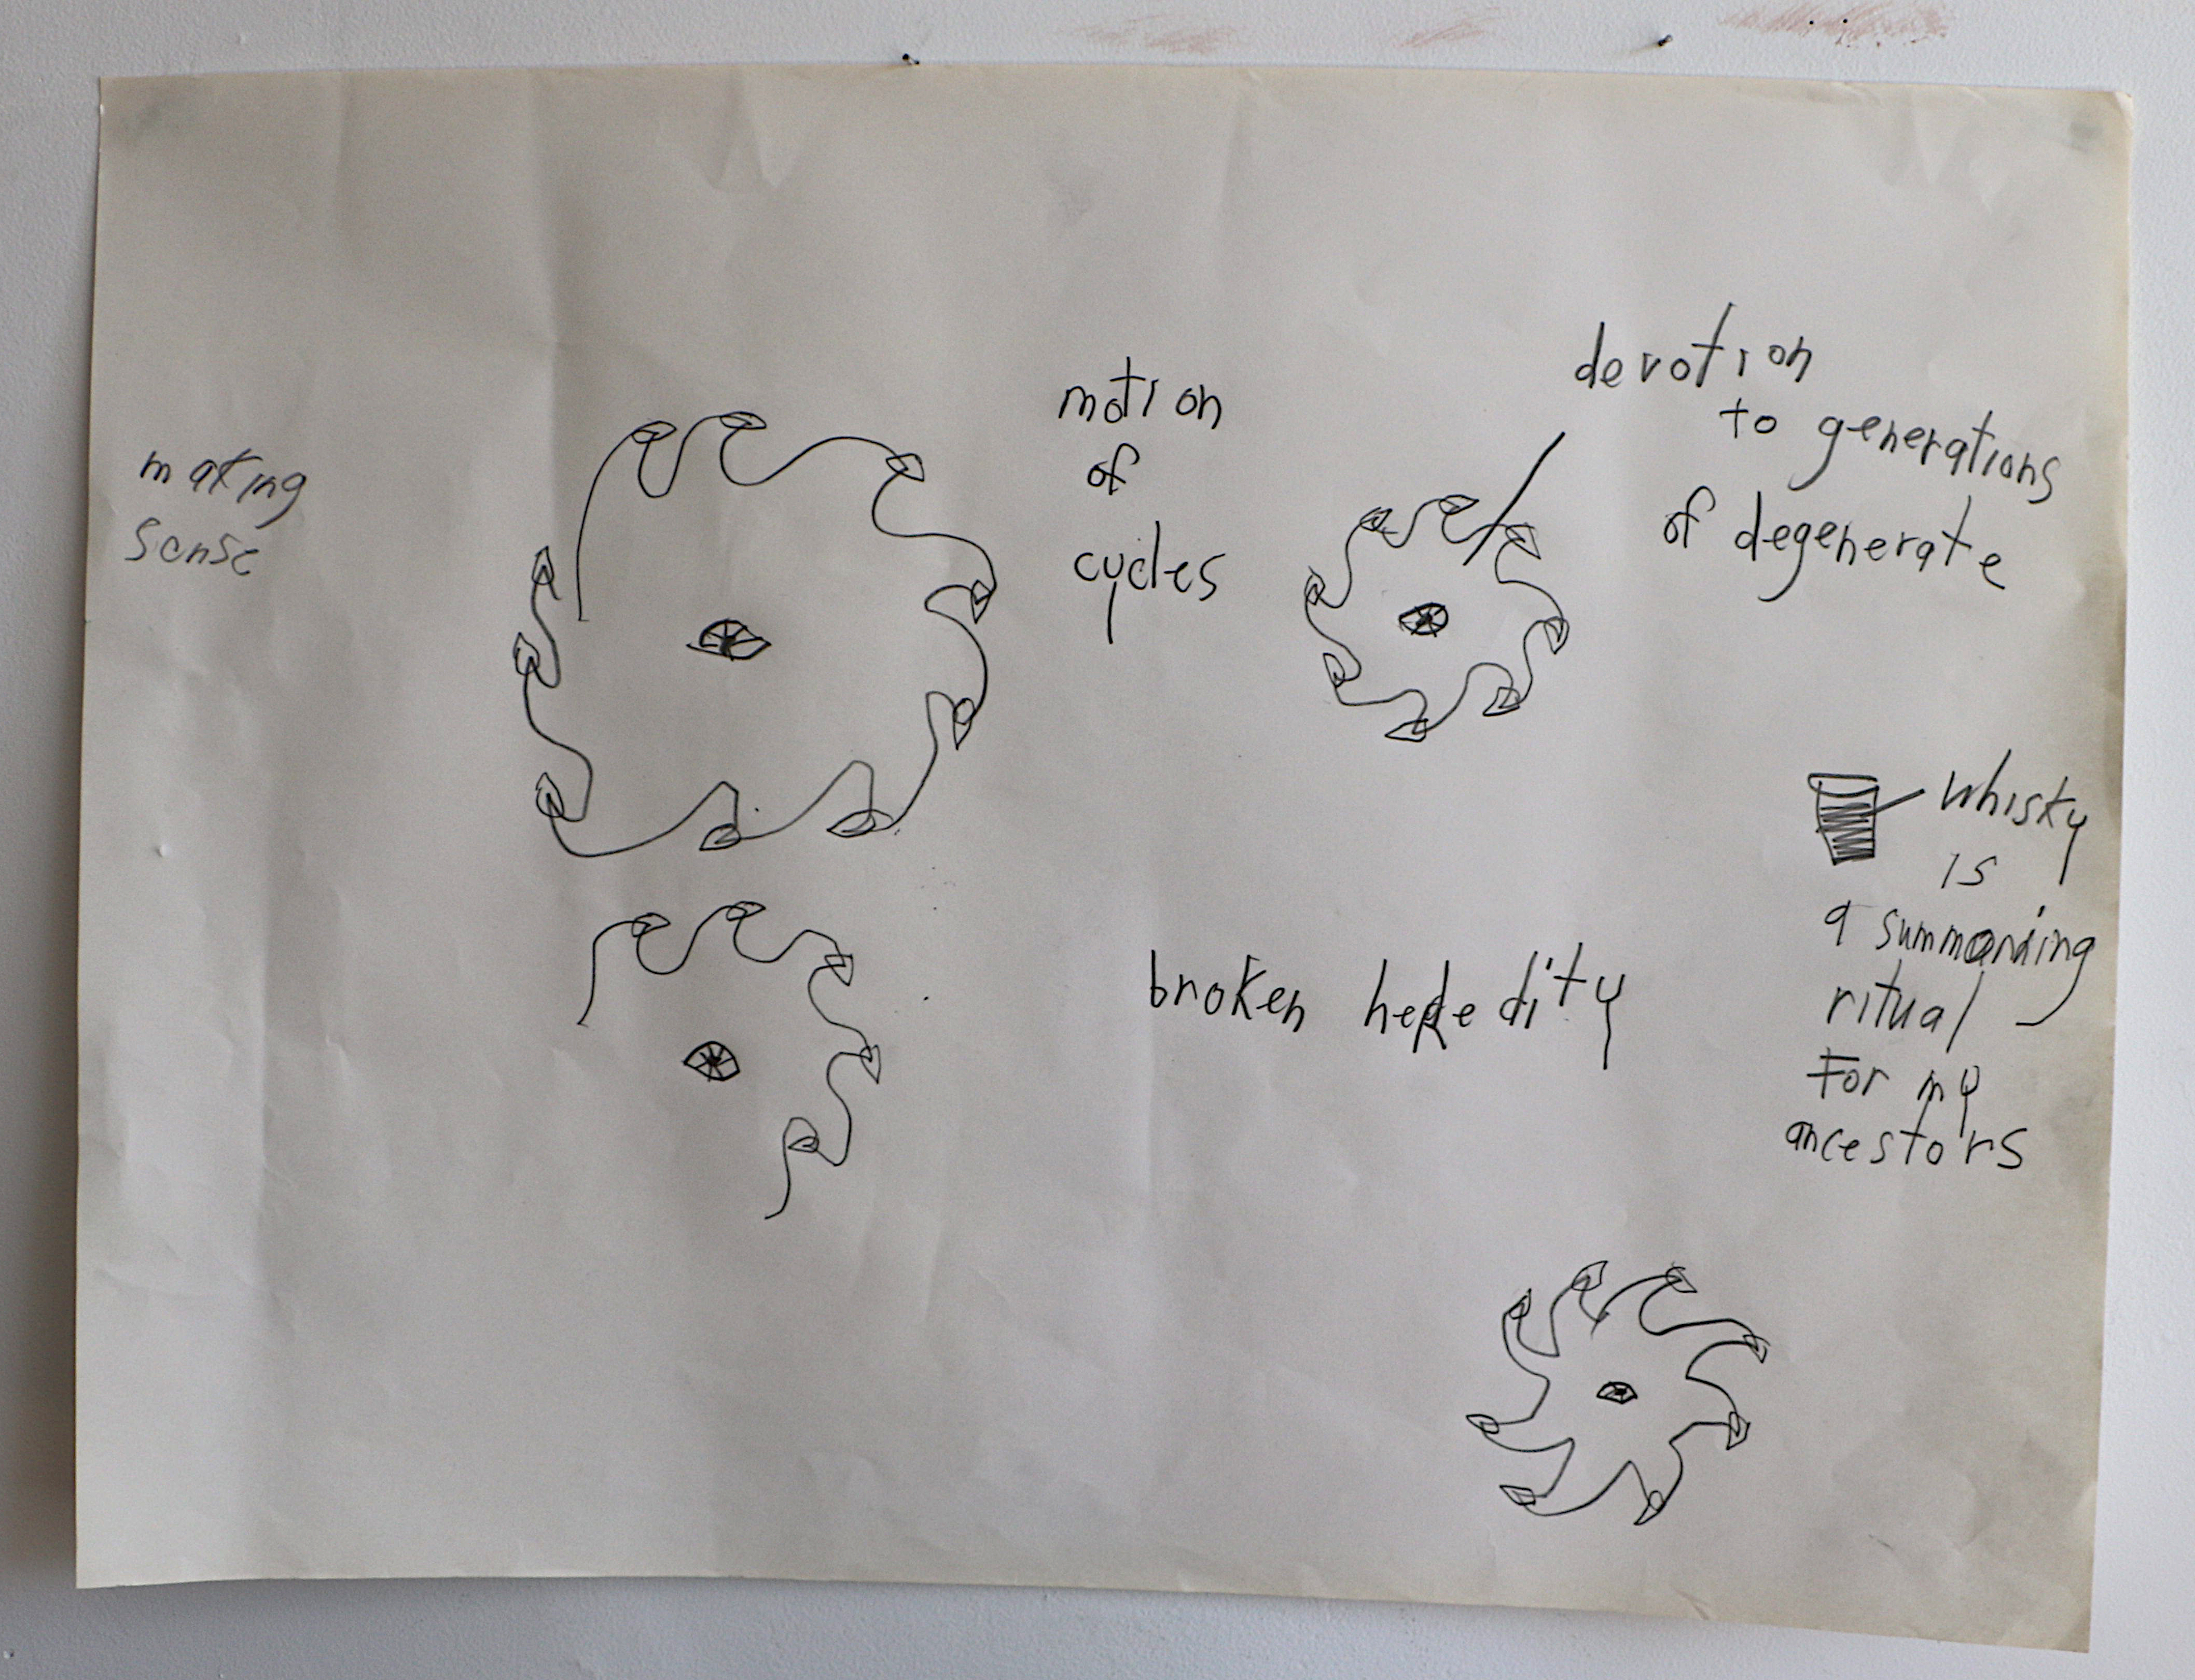 making
sense
motion
of
cycles
devotion
to generations
of degenerate
whisky
is
a summoning
ritual
For my
ancestors
broken heredity